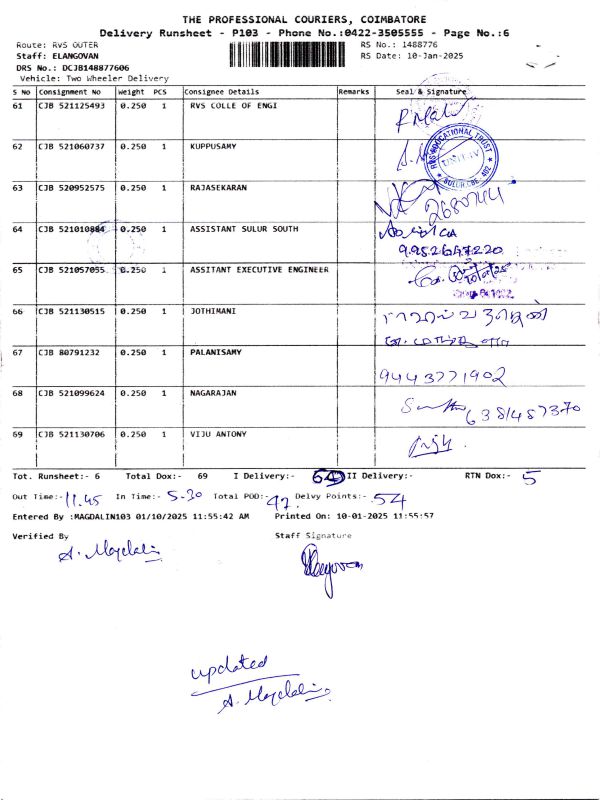 THE PROFESSIONAL COURIERS, COIMBATORE
Delivery Runsheet - P103 - Phone No.:0422-3505555 - Page No.:6
Route: RVS OUTER RS No.: 1488776
Staff: ELANGOVAN RS Date: 10-Jan-2025
DRS No.: DCJB148877606
Vehicle: Two Wheeler Delivery
S No Consignment No Weight PCS Consignee Details Remarks Seal & Signature
61 CJB 521125493 0.250 1 RVS COLLE OF ENGI
62 CJB 521060737 0.250 1 KUPPUSAMY
63 CJB 520952575 0.250 1 RAJASEKARAN
64 CJB 521010884 0.250 1 ASSISTANT SULUR SOUTH
9952647220
65 CJB 521057055 0.250 1 ASSITANT EXECUTIVE ENGINEER
66 CJB 521130515 0.250 1 JOTHIMANI
67 CJB 80791232 0.250 1 PALANISAMY
9443771902
68 CJB 521099624 0.250 1 NAGARAJAN
69 CJB 521130706 0.250 1 VIJU ANTONY
Tot. Runsheet:- 6 Total Dox:- 69 I Delivery:- 64 II Delivery:- RTN Dox:- 5
Out Time:- 11.45 In Time:- 5-30 Total POD:- 47 Delvy Points:- 54
Entered By :MAGDALIN103 01/10/2025 11:55:42 AM Printed On: 10-01-2025 11:55:57
Verified By Staff Signature
A. Magdalin Elangovan
updated
A. Magdalin